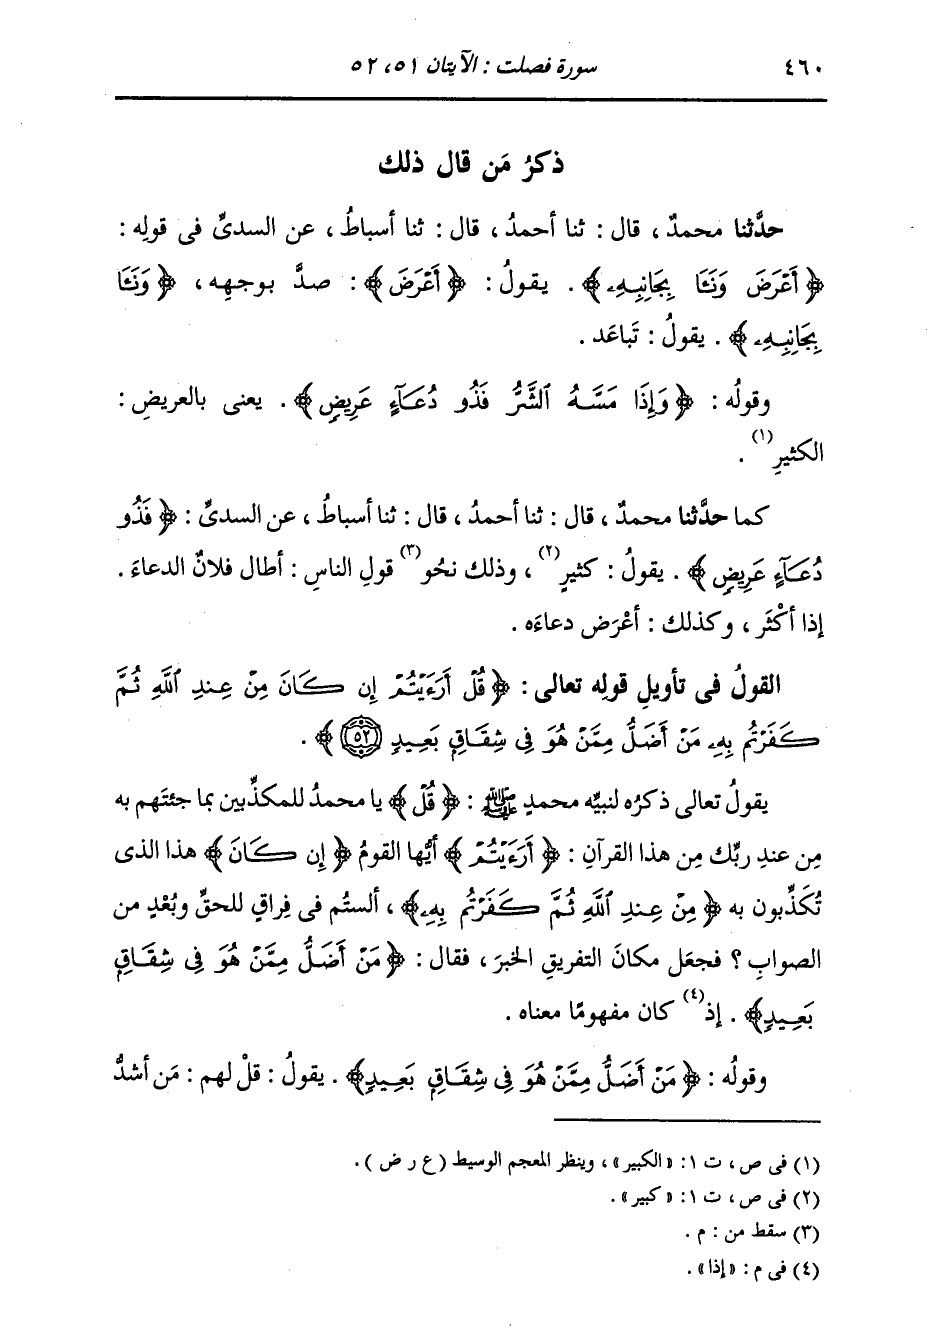 ٤٦٠ سورة فصلت : الآيتان ٥١، ٥٢
ذكرُ مَن قال ذلك
حدَّثنا محمدٌ ، قال : ثنا أحمدُ ، قال : ثنا أسباطُ ، عن السدىِّ فى قولِه :
﴿ أَعْرَضَ وَنَـَٔا بِجَانِبِهِۦ ﴾ . يقولُ : ﴿ أَعْرَضَ ﴾ : صدَّ بوجهِه ، ﴿ وَنَـَٔا
بِجَانِبِهِۦ ﴾ . يقولُ : تَباعَد .
وقولُه : ﴿ وَإِذَا مَسَّهُ ٱلشَّرُّ فَذُو دُعَآءٍ عَرِيضٍ ﴾ . يعنى بالعريضِ :
الكثيرِ (١) .
كما حدَّثنا محمدٌ ، قال : ثنا أحمدُ ، قال : ثنا أسباطُ ، عن السدىِّ : ﴿ فَذُو
دُعَآءٍ عَرِيضٍ ﴾ . يقولُ : كثيرٍ (٢) ، وذلك نحوُ (٣) قولِ الناسِ : أطال فلانٌ الدعاءَ .
إذا أكْثَر ، وكذلك : أعْرَض دعاءَه .
القولُ فى تأويلِ قولِه تعالى : ﴿ قُلْ أَرَءَيْتُمْ إِن كَانَ مِنْ عِندِ ٱللَّهِ ثُمَّ
كَفَرْتُم بِهِۦ مَنْ أَضَلُّ مِمَّنْ هُوَ فِى شِقَاقٍۭ بَعِيدٍ ٥٢ ﴾ .
يقولُ تعالى ذكرُه لنبيِّه محمدٍ ﷺ : ﴿ قُلْ ﴾ يا محمدُ للمكذِّبين بما جئتَهم به
مِن عندِ ربِّك مِن هذا القرآنِ : ﴿ أَرَءَيْتُمْ ﴾ أيُّها القومُ ﴿ إِن كَانَ ﴾ هذا الذى
تُكَذِّبون به ﴿ مِنْ عِندِ ٱللَّهِ ثُمَّ كَفَرْتُم بِهِۦ ﴾ ، ألستُم فى فِراقٍ للحقِّ وبُعْدٍ من
الصوابِ ؟ فجعَل مكانَ التفريقِ الخبرَ ، فقال : ﴿ مَنْ أَضَلُّ مِمَّنْ هُوَ فِى شِقَاقٍۭ
بَعِيدٍ ﴾ . إذ (٤) كان مفهومًا معناه .
وقولُه : ﴿ مَنْ أَضَلُّ مِمَّنْ هُوَ فِى شِقَاقٍۭ بَعِيدٍ ﴾ . يقولُ : قلْ لهم : مَن أشدُّ
(١) فى ص ، ت ١ : « الكبير » ، وينظر المعجم الوسيط ( ع ر ض ) .
(٢) فى ص ، ت ١ : « كبير » .
(٣) سقط من : م .
(٤) فى م : « إذا » .